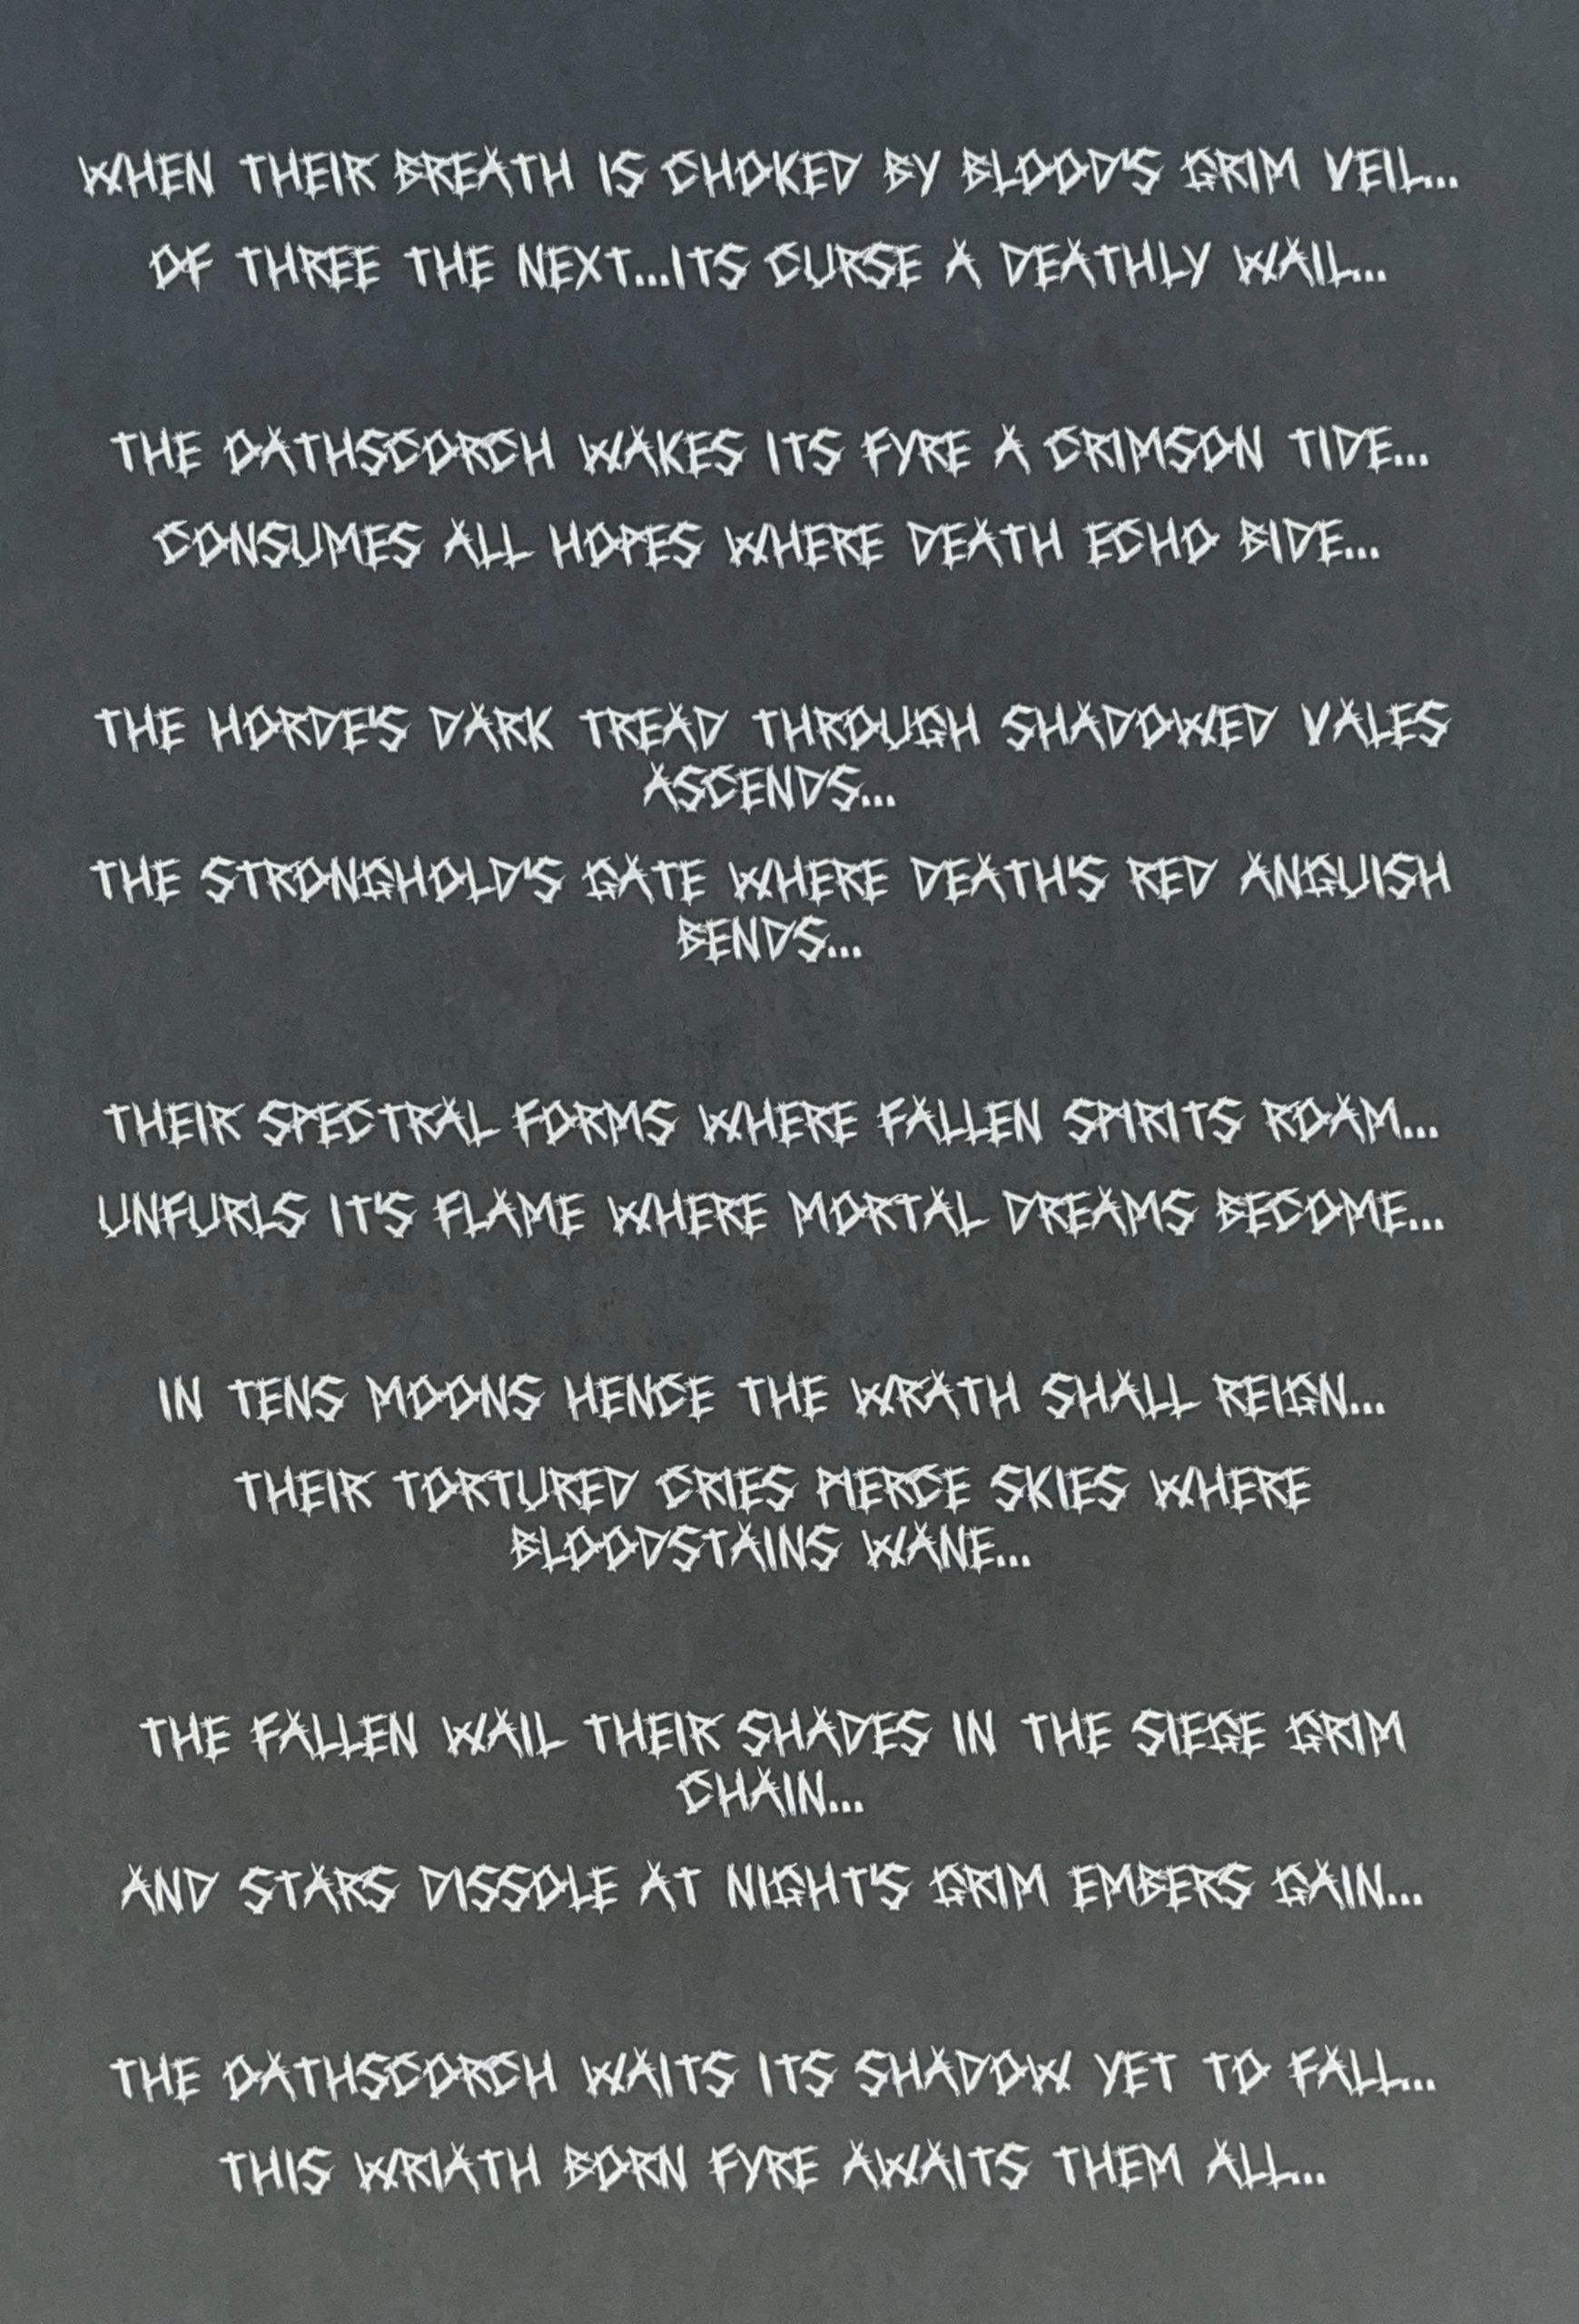 WHEN THEIR BREATH IS CHOKED BY BLOOD'S GRIM VEIL...
OF THREE THE NEXT...ITS CURSE A DEATHLY WAIL...
THE OATHSCORCH WAKES ITS FYRE A CRIMSON TIDE...
CONSUMES ALL HOPES WHERE DEATH ECHO BIDE...
THE HORDE'S DARK TREAD THROUGH SHADOWED VALES
ASCENDS...
THE STRONGHOLD'S GATE WHERE DEATH'S RED ANGUISH
BENDS...
THEIR SPECTRAL FORMS WHERE FALLEN SPIRITS ROAM...
UNFURLS IT'S FLAME WHERE MORTAL DREAMS BECOME...
IN TENS MOONS HENCE THE WRATH SHALL REIGN...
THEIR TORTURED CRIES PIERCE SKIES WHERE
BLOODSTAINS WANE...
THE FALLEN WAIL THEIR SHADES IN THE SIEGE GRIM
CHAIN...
AND STARS DISSOLE AT NIGHT'S GRIM EMBERS GAIN...
THE OATHSCORCH WAITS ITS SHADOW YET TO FALL...
THIS WRIATH BORN FYRE AWAITS THEM ALL...